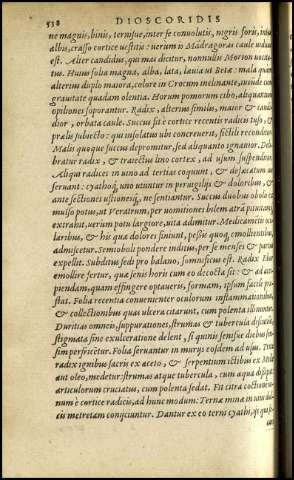 538 DIOSCORIDIS
ne magnis, binis, ternisue, inter se conuolutis, nigris foris, intus
albis, crasso cortice uestitis: uerum is Madragoras caule uiduus
est. Alter candidus, qui mas dicitur, nonnullis Morion uocita-
tus. Huius folia magna, alba, lata, laeuia ut Beta: mala quam
alterius duplo maiora, colore in Crocum inclinante, iucunde cum
grauitate quadam olentia. Horum pomorum cibo, aliquantum
opiliones soporantur. Radix, alterius similis, maior & candi-
dior, orbata caule. Succus fit è cortice recentis radicis tuso, &
praelis subiecto: qui insolatus ubi concreuerit, fictili reconditur.
Malis quoque succus depromitur, sed aliquanto ignauior. Deli-
bratur radix, & traiectus lino cortex, ad usum suspenditur.
Aliqui radices in uino ad tertias coquunt, & defaecatum ius
seruant: cyathoque uno utuntur in peruigilijs & doloribus, &
ante sectiones ustionesque, ne sentiantur. Succus duobus obolis cum
mulso potus, ut Veratrum, per uomitiones bilem atram pituitamque
extrahit, uerum potu largiore, uita adimitur. Medicamentis ocu-
laribus, & his quae dolores finiunt, pessis quoque, emollientibus,
admiscetur. Semioboli pondere inditus, per se menses & partus
expellit. Subditus sedi pro balano, somnificus est. Radix Ebur
emollire fertur, quae senis horis cum eo decocta sit: & ad acci-
piendam, quam effingere optaueris, formam, ipsum facile prae-
stat. Folia recentia conuenienter oculorum inflammationibus,
& collectionibus quas ulcera citarunt, cum polenta illinuntur.
Duritias omneis, suppurationes, strumas & tubercula discutiunt,
stigmata sine exulceratione delent, si quinis senisue diebus leuiter
sim perfricetur. Folia seruantur in murijs eosdem ad usus. Trita
radix ignibus sacris ex aceto, & serpentum ictibus ex Melle
aut oleo, medetur: strumas atque tubercula, cum aqua dissipat:
articulorum cruciatus, cum polenta sedat. Fit citra coctionem ui-
num è cortice radicis, ad hunc modum: Ternae minae in uini dul-
cis metretam conijciuntur. Dantur ex eo terni cyathi,